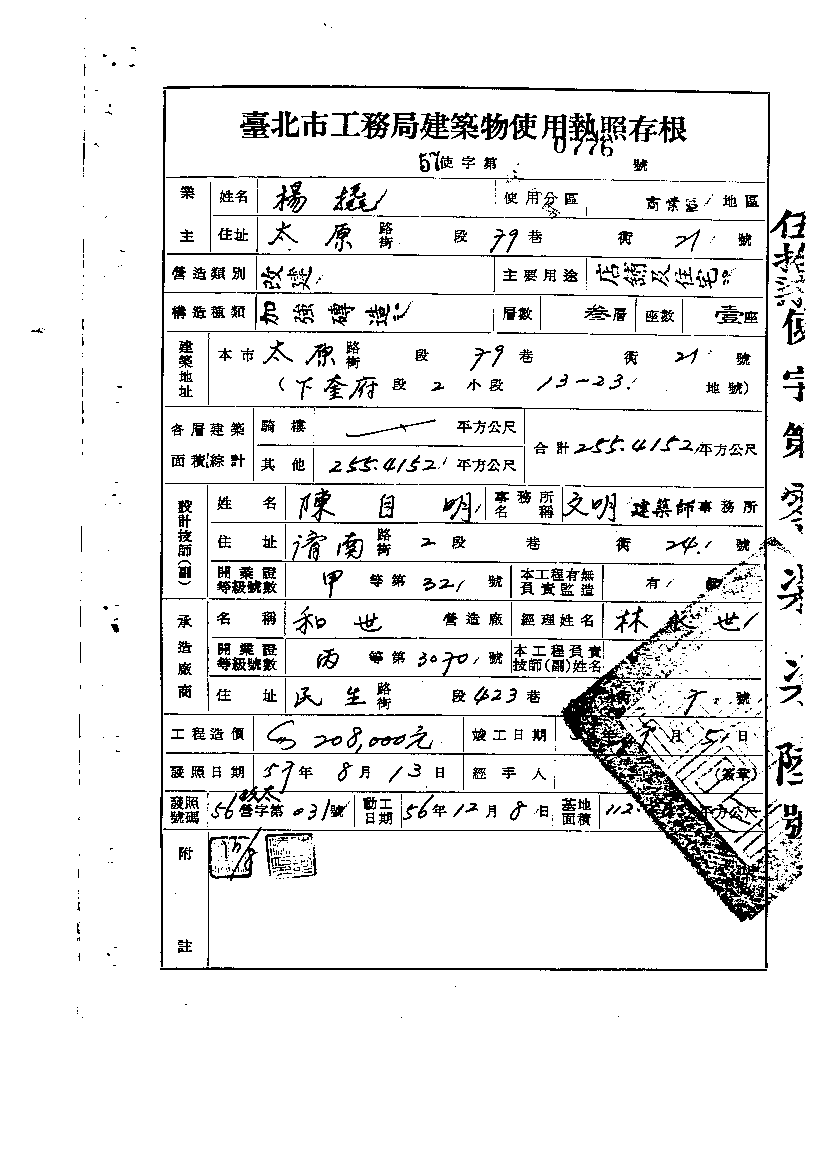 臺北市工務局建築物使用執照存根
57使字第 0776 號
業主 姓名 楊 使用分區 商業區 地區
住址 太原 路街 段 79巷 衖 21 號
營造類別 改建 主要用途 店舖及住宅
構造種類 加強磚造 層數 叁層 座數 壹座
建築地址 本市 太原 路街 段 79巷 衖 21 號
(下奎府段 2 小段 13-23 地號)
各層建築面積綜計 騎樓 平方公尺 合計 255.4152 平方公尺
其他 255.4152 平方公尺
設計技師(副) 姓名 陳自明 事務所名稱 文明 建築師事務所
住址 濟南 路街 2段 巷 衖 24 號
開業證等級號數 甲等第 321 號 本工程有無負責監造 有
承造廠商 名稱 和世 營造廠 經理姓名 林永世
開業證等級號數 丙等第 3070 號 本工程負責技師(副)姓名
住址 民生 路街 段 423巷 衖 號
工程造價 208,000元 竣工日期 月 5日
發照日期 57年 8月 13日 經手人 (簽章)
發照號碼 56 營字第 031號 動工日期 56年12月8日 基地面積 112. 平方公尺
附註
伍拾柒使字第零柒柒陸號